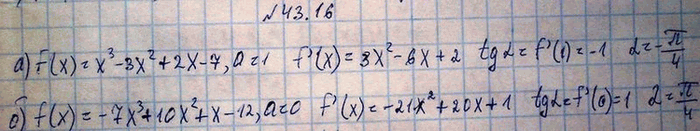 №43.16
а) f(x) = x³-3x²+2x-7, a=1 f'(x) = 3x²-6x+2 tg α = f'(1) = -1 α = -π/4
б) f(x) = -7x³+10x²+x-12, a=0 f'(x) = -21x²+20x+1 tg α = f'(0) = 1 α = π/4